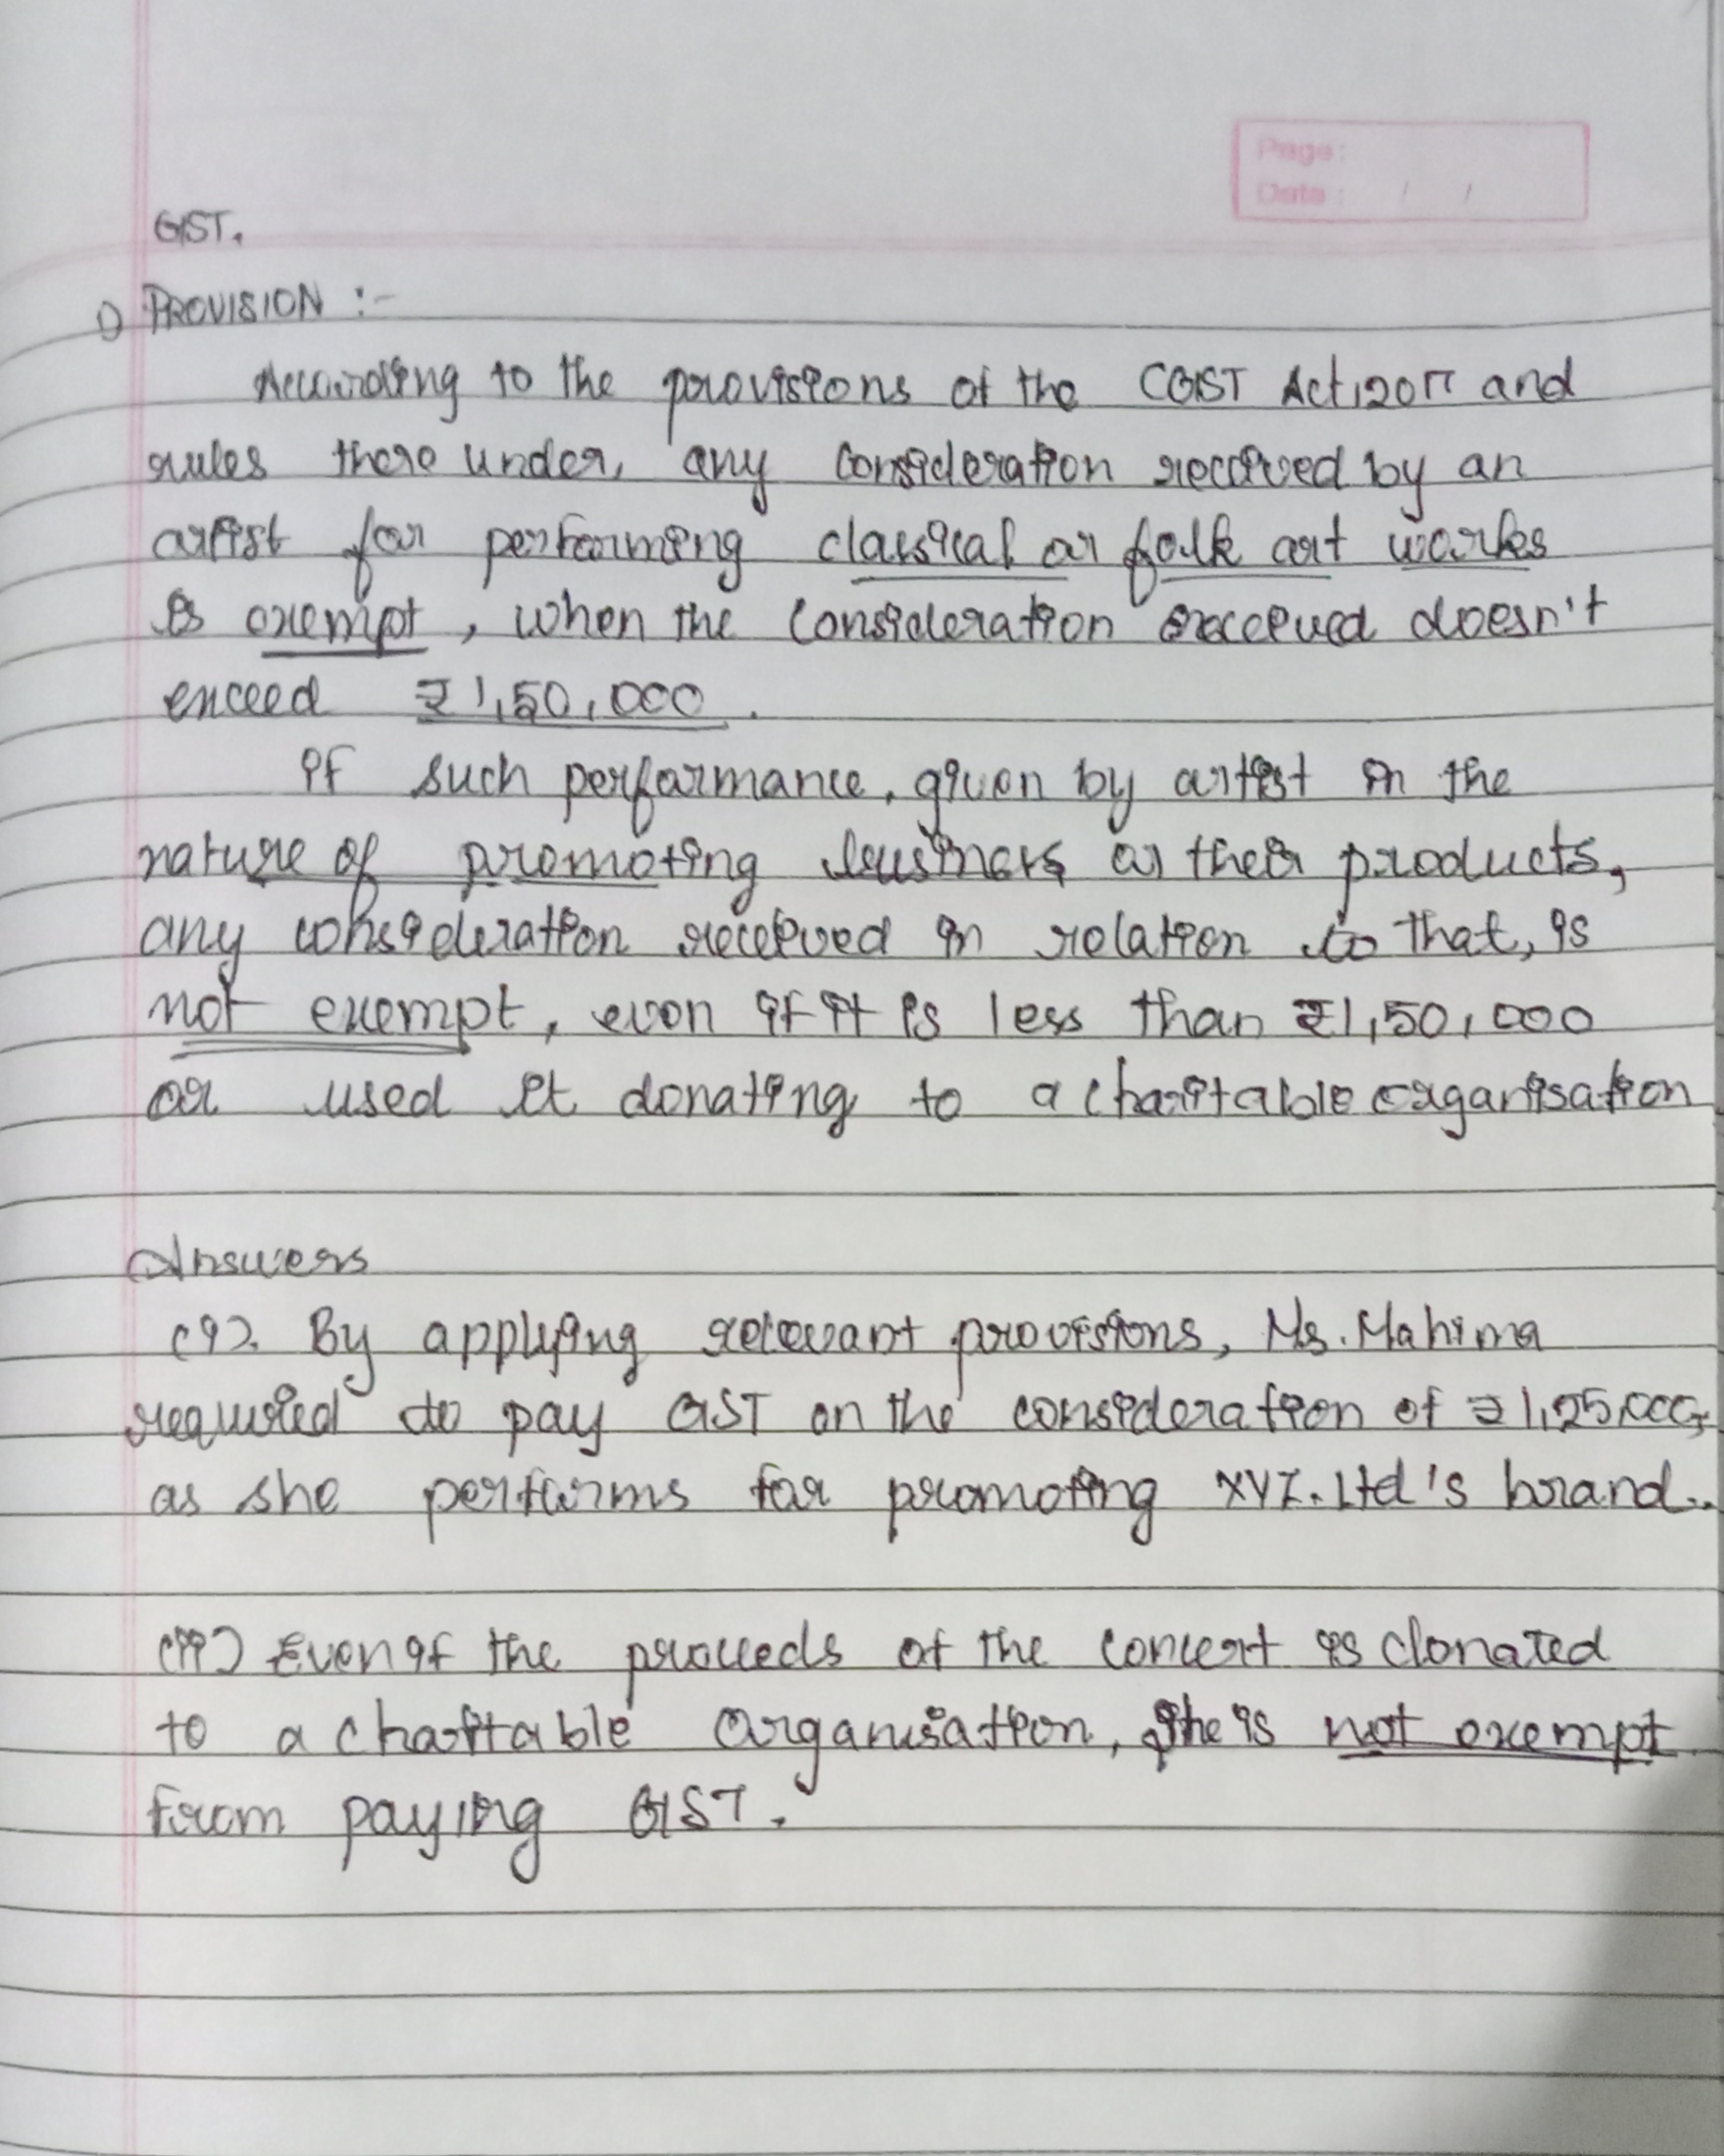 Page:
Date : / /
GST.
1) PROVISION :-
According to the provisions of the CGST Act,2017 and
rules there under, any consideration received by an
artist for performing classical or folk art works
is exempt, when the consideration received doesn't
exceed ₹1,50,000.
if such performance, given by artist in the
nature of promoting business or their products,
any consideration received in relation to that, is
not exempt, even if it is less than ₹1,50,000
or used it donating to a charitable organisation
Answers
(i). By applying relevant provisions, Ms. Mahima
required to pay GST on the consideration of ₹1,25,000,
as she performs for promoting XYZ. Ltd's brand..
(ii) Even if the proceeds of the concert is donated
to a charitable organisation, she is not exempt
from paying GST.